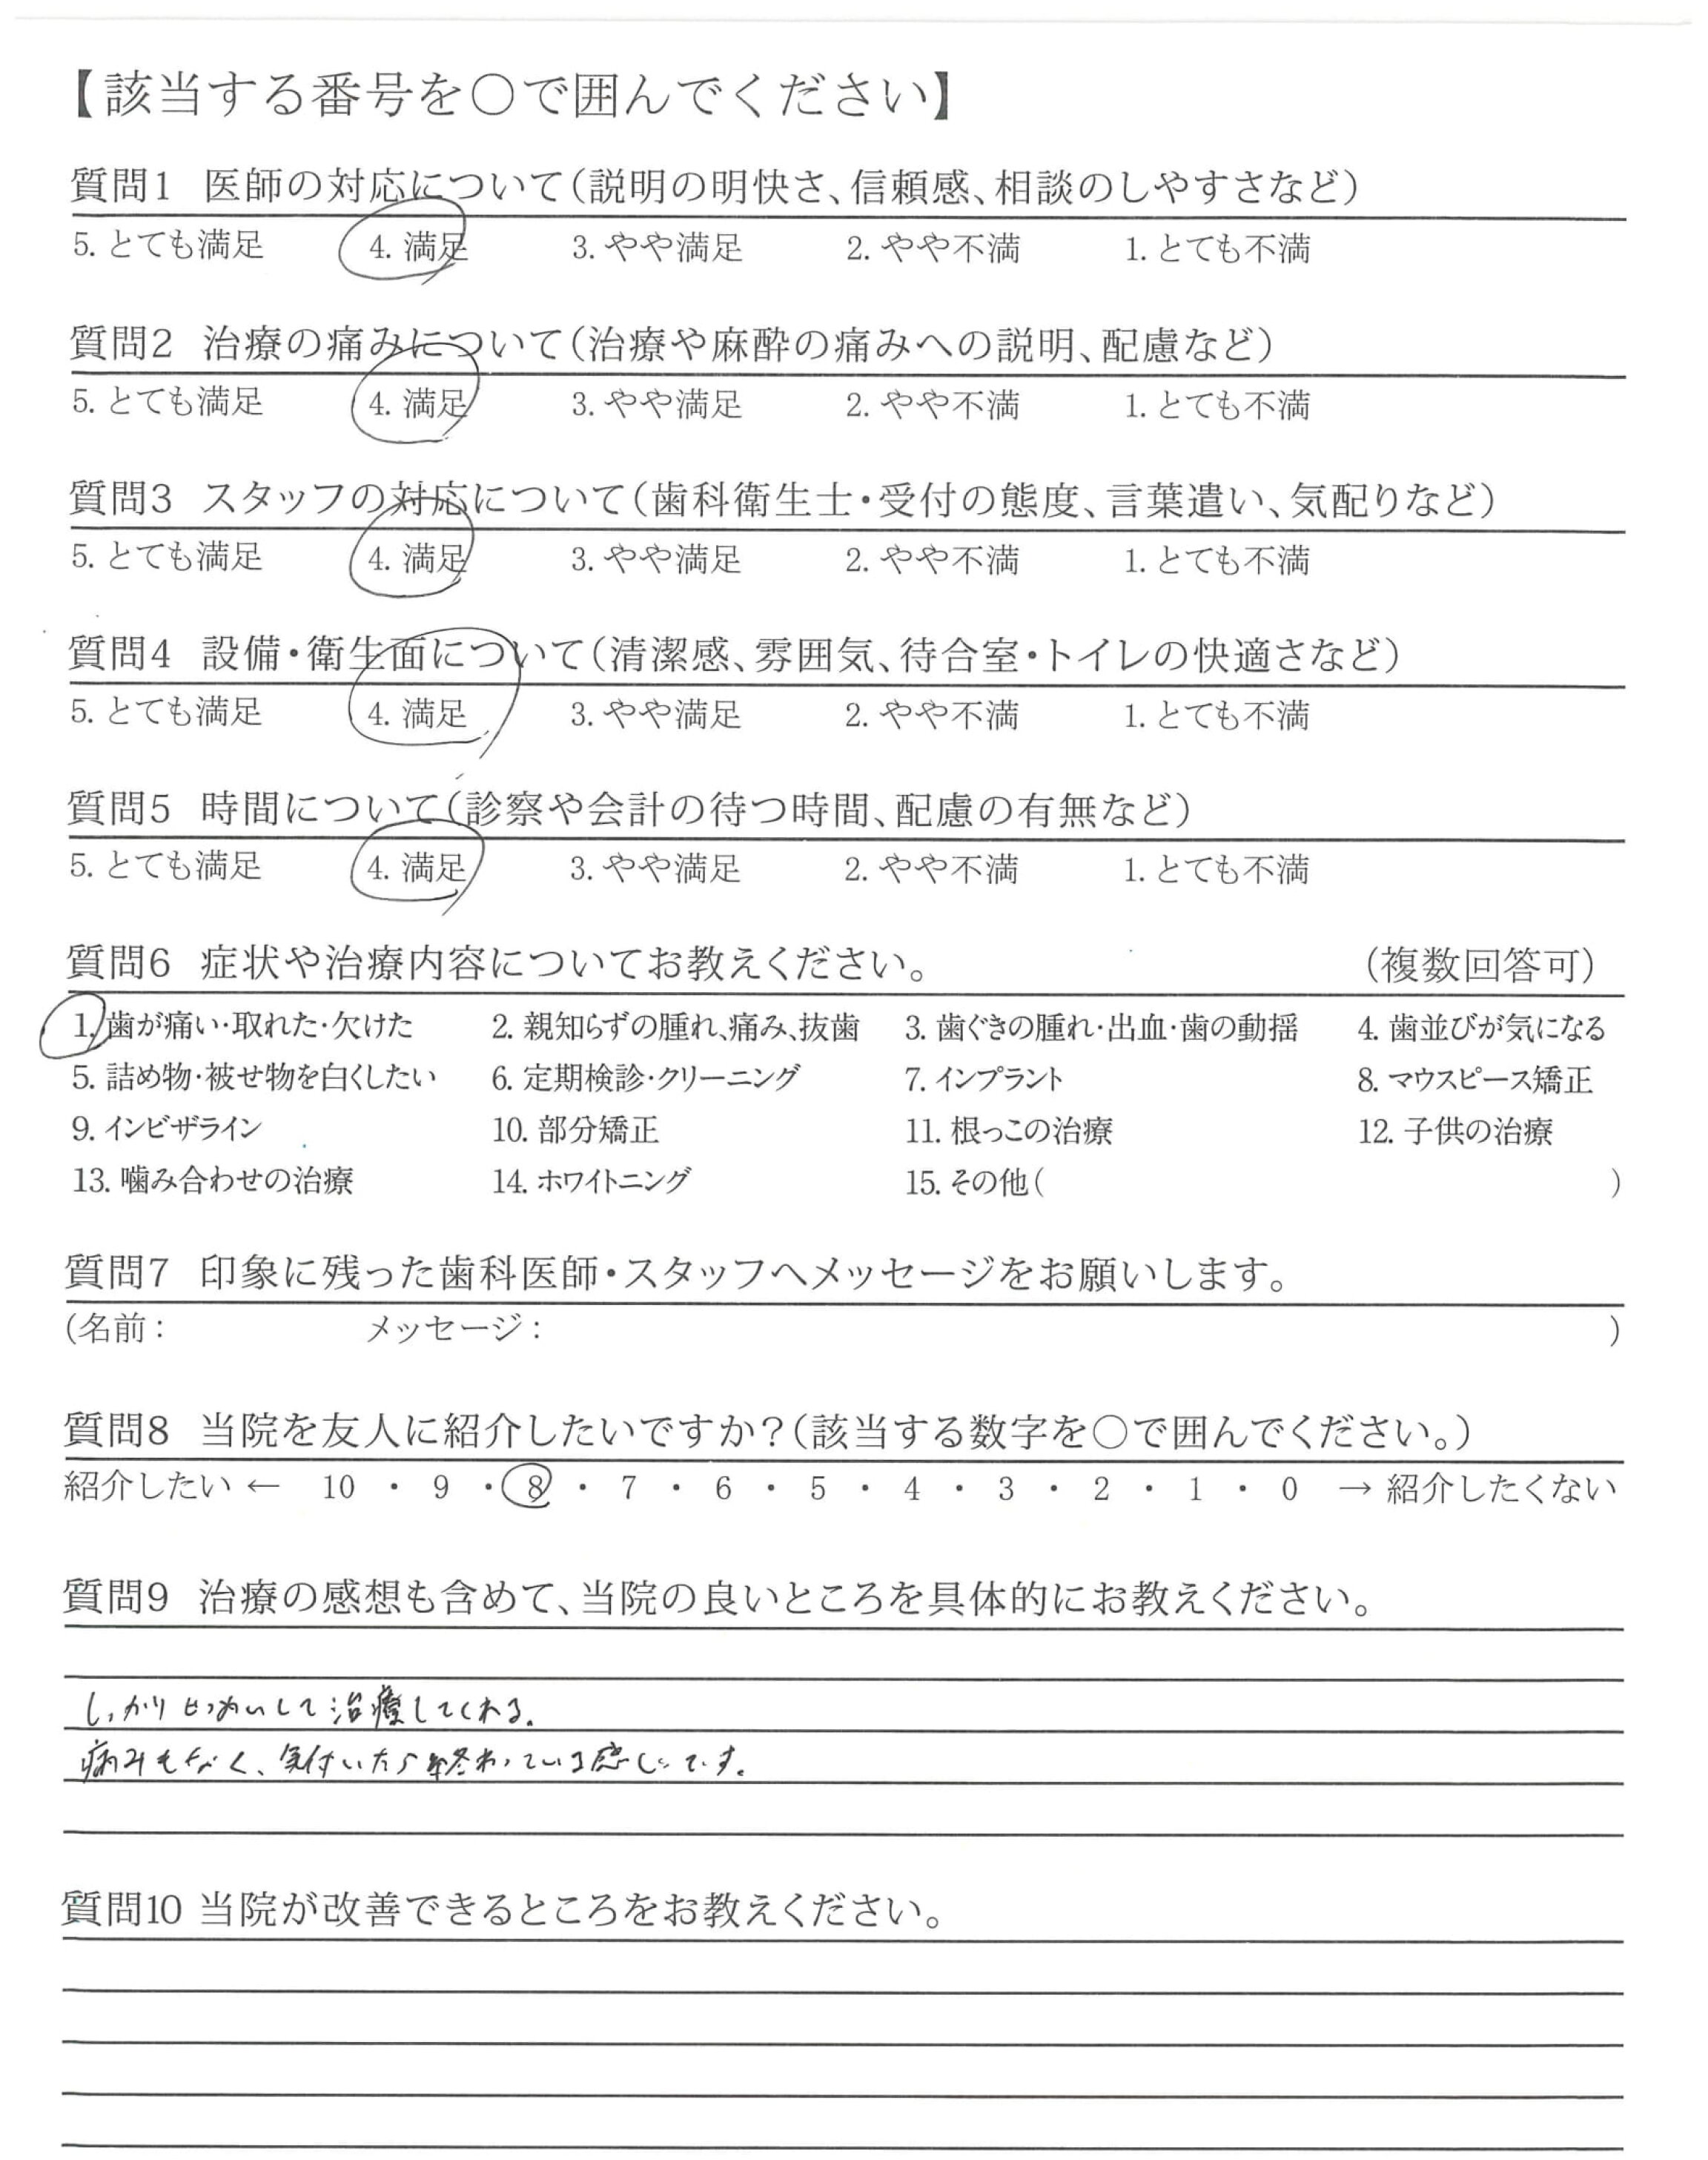 【該当する番号を〇で囲んでください】
質問1 医師の対応について(説明の明快さ、信頼感、相談のしやすさなど)
5. とても満足 4. 満足 3. やや満足 2. やや不満 1. とても不満
質問2 治療の痛みについて(治療や麻酔の痛みへの説明、配慮など)
5. とても満足 4. 満足 3. やや満足 2. やや不満 1. とても不満
質問3 スタッフの対応について(歯科衛生士・受付の態度、言葉遣い、気配りなど)
5. とても満足 4. 満足 3. やや満足 2. やや不満 1. とても不満
質問4 設備・衛生面について(清潔感、雰囲気、待合室・トイレの快適さなど)
5. とても満足 4. 満足 3. やや満足 2. やや不満 1. とても不満
質問5 時間について(診察や会計の待つ時間、配慮の有無など)
5. とても満足 4. 満足 3. やや満足 2. やや不満 1. とても不満
質問6 症状や治療内容についてお教えください。 (複数回答可)
1. 歯が痛い・取れた・欠けた 2. 親知らずの腫れ、痛み、抜歯 3. 歯ぐきの腫れ・出血・歯の動揺 4. 歯並びが気になる
5. 詰め物・被せ物を白くしたい 6. 定期検診・クリーニング 7. インプラント 8. マウスピース矯正
9. インビザライン 10. 部分矯正 11. 根っこの治療 12. 子供の治療
13. 噛み合わせの治療 14. ホワイトニング 15. その他( )
質問7 印象に残った歯科医師・スタッフへメッセージをお願いします。
(名前: メッセージ: )
質問8 当院を友人に紹介したいですか?(該当する数字を〇で囲んでください。)
紹介したい ← 10 ・ 9 ・ 8 ・ 7 ・ 6 ・ 5 ・ 4 ・ 3 ・ 2 ・ 1 ・ 0 → 紹介したくない
質問9 治療の感想も含めて、当院の良いところを具体的にお教えください。
しっかり して治療してくれる。
痛みもなく、気付いたら終わっている感じです。
質問10 当院が改善できるところをお教えください。